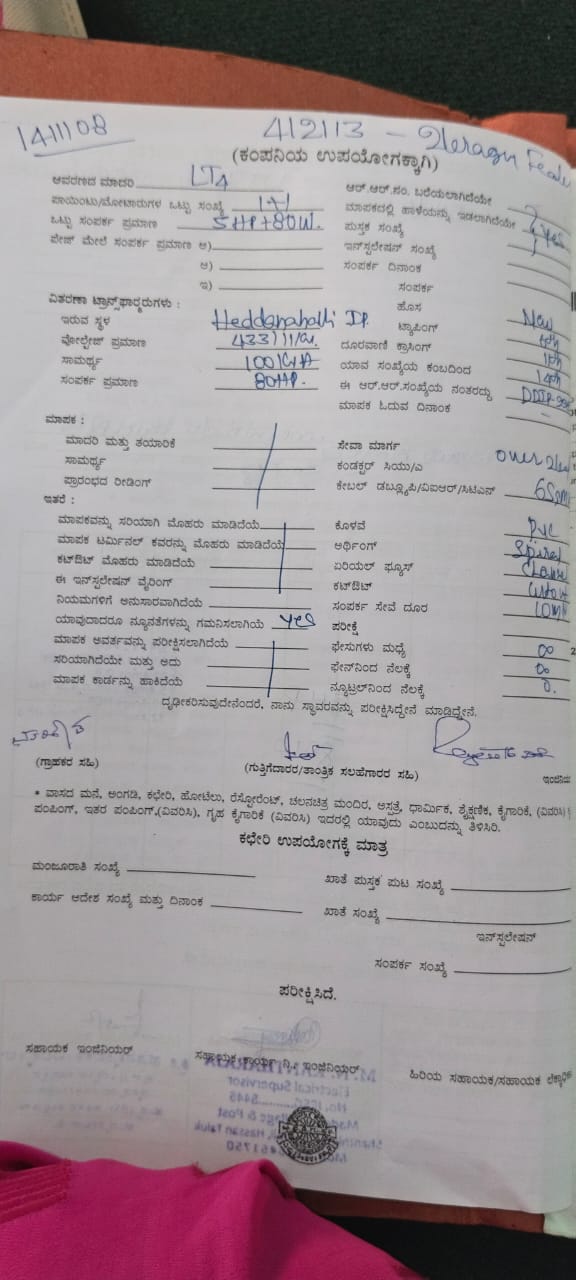 1411108
412113 - Heragu Feeder
(ಕಂಪನಿಯ ಉಪಯೋಗಕ್ಕಾಗಿ)
ಆವರಣದ ಮಾದರಿ LT4
ಪಾಯಿಂಟು/ಮೋಟಾರುಗಳ ಒಟ್ಟು ಸಂಖ್ಯೆ 1+1
ಒಟ್ಟು ಸಂಪರ್ಕ ಪ್ರಮಾಣ 5HP+80W.
ಪೇಜ್ ಮೇಲೆ ಸಂಪರ್ಕ ಪ್ರಮಾಣ ಅ)
ಆ)
ಇ)
ಆರ್.ಆರ್.ಸಂ. ಬರೆಯಲಾಗಿದೆಯೇ
ಮಾಪಕದಲ್ಲಿ ಹಾಳೆಯನ್ನು ಇಡಲಾಗಿದೆಯೇ yes
ಪುಸ್ತಕ ಸಂಖ್ಯೆ
ಇನ್‌ಸ್ಟಲೇಷನ್ ಸಂಖ್ಯೆ
ಸಂಪರ್ಕ ದಿನಾಂಕ
ಸಂಪರ್ಕ
ವಿತರಣಾ ಟ್ರಾನ್ಸ್‌ಫಾರ್ಮರುಗಳು :
ಇರುವ ಸ್ಥಳ Heddanahalli
ವೋಲ್ಟೇಜ್ ಪ್ರಮಾಣ 433/11/
ಸಾಮರ್ಥ್ಯ 100KVA
ಸಂಪರ್ಕ ಪ್ರಮಾಣ 80HP.
ಹೊಸ New
ಟ್ಯಾಪಿಂಗ್
ದೂರವಾಣಿ ಕ್ರಾಸಿಂಗ್
ಯಾವ ಸಂಖ್ಯೆಯ ಕಂಬದಿಂದ 14th
ಈ ಆರ್.ಆರ್.ಸಂಖ್ಯೆಯ ನಂತರದ್ದು
ಮಾಪಕ ಓದುವ ದಿನಾಂಕ
ಮಾಪಕ :
ಮಾದರಿ ಮತ್ತು ತಯಾರಿಕೆ
ಸಾಮರ್ಥ್ಯ
ಪ್ರಾರಂಭದ ರೀಡಿಂಗ್
ಸೇವಾ ಮಾರ್ಗ
ಕಂಡಕ್ಟರ್ ಸಿಯು/ಎ
ಕೇಬಲ್ ಡಬ್ಲ್ಯೂಪಿ/ವಿಐಆರ್/ಸಿಟಿಎಸ್
ಇತರೆ :
ಮಾಪಕವನ್ನು ಸರಿಯಾಗಿ ಮೊಹರು ಮಾಡಿದೆಯೆ
ಮಾಪಕ ಟರ್ಮಿನಲ್ ಕವರನ್ನು ಮೊಹರು ಮಾಡಿದೆಯೆ
ಕಟ್‌ಔಟ್ ಮೊಹರು ಮಾಡಿದೆಯೆ
ಈ ಇನ್‌ಸ್ಟಲೇಷನ್ ವೈರಿಂಗ್
ನಿಯಮಗಳಿಗೆ ಅನುಸಾರವಾಗಿದೆಯೆ
ಯಾವುದಾದರೂ ನ್ಯೂನತೆಗಳನ್ನು ಗಮನಿಸಲಾಗಿಯೆ yes
ಮಾಪಕ ಅವರ್ತವನ್ನು ಪರೀಕ್ಷಿಸಲಾಗಿದೆಯೆ
ಸರಿಯಾಗಿದೆಯೇ ಮತ್ತು ಅದು
ಮಾಪಕ ಕಾರ್ಡನ್ನು ಹಾಕಿದೆಯೆ
ಕೊಳವೆ PVC
ಅರ್ಥಿಂಗ್ Spiral
ಏರಿಯಲ್ ಫ್ಯೂಸ್
ಕಟ್‌ಔಟ್ Cutout
ಸಂಪರ್ಕ ಸೇವೆ ದೂರ
ಪರೀಕ್ಷೆ
ಫೇಸುಗಳು ಮಧ್ಯೆ ∞
ಫೇಸ್‌ನಿಂದ ನೆಲಕ್ಕೆ ∞
ನ್ಯೂಟ್ರಲ್‌ನಿಂದ ನೆಲಕ್ಕೆ 0.
ದೃಢೀಕರಿಸುವುದೇನೆಂದರೆ, ನಾನು ಸ್ಥಾವರವನ್ನು ಪರೀಕ್ಷಿಸಿದ್ದೇನೆ ಮಾಡಿದ್ದೇನೆ.
(ಗ್ರಾಹಕರ ಸಹಿ)
(ಗುತ್ತಿಗೆದಾರರ/ತಾಂತ್ರಿಕ ಸಲಹೆಗಾರರ ಸಹಿ)
* ವಾಸದ ಮನೆ, ಅಂಗಡಿ, ಕಛೇರಿ, ಹೋಟೆಲು, ರೆಸ್ಟೋರೆಂಟ್, ಚಲನಚಿತ್ರ ಮಂದಿರ, ಆಸ್ಪತ್ರೆ, ಧಾರ್ಮಿಕ, ಶೈಕ್ಷಣಿಕ, ಕೈಗಾರಿಕೆ, (ವಿವರಿಸಿ)
ಪಂಪಿಂಗ್, ಇತರ ಪಂಪಿಂಗ್,(ವಿವರಿಸಿ), ಗೃಹ ಕೈಗಾರಿಕೆ (ವಿವರಿಸಿ) ಇದರಲ್ಲಿ ಯಾವುದು ಎಂಬುದನ್ನು ತಿಳಿಸಿರಿ.
ಕಛೇರಿ ಉಪಯೋಗಕ್ಕೆ ಮಾತ್ರ
ಮಂಜೂರಾತಿ ಸಂಖ್ಯೆ
ಖಾತೆ ಪುಸ್ತಕ ಪುಟ ಸಂಖ್ಯೆ
ಕಾರ್ಯ ಆದೇಶ ಸಂಖ್ಯೆ ಮತ್ತು ದಿನಾಂಕ
ಖಾತೆ ಸಂಖ್ಯೆ
ಇನ್‌ಸ್ಟಲೇಷನ್
ಸಂಪರ್ಕ ಸಂಖ್ಯೆ
ಪರೀಕ್ಷಿಸಿದೆ.
ಸಹಾಯಕ ಇಂಜಿನಿಯರ್
ಸಹಾಯಕ ಕಾರ್ಯ ನಿ., ಇಂಜಿನಿಯರ್
ಹಿರಿಯ ಸಹಾಯಕ/ಸಹಾಯಕ
Electrical Supervisor